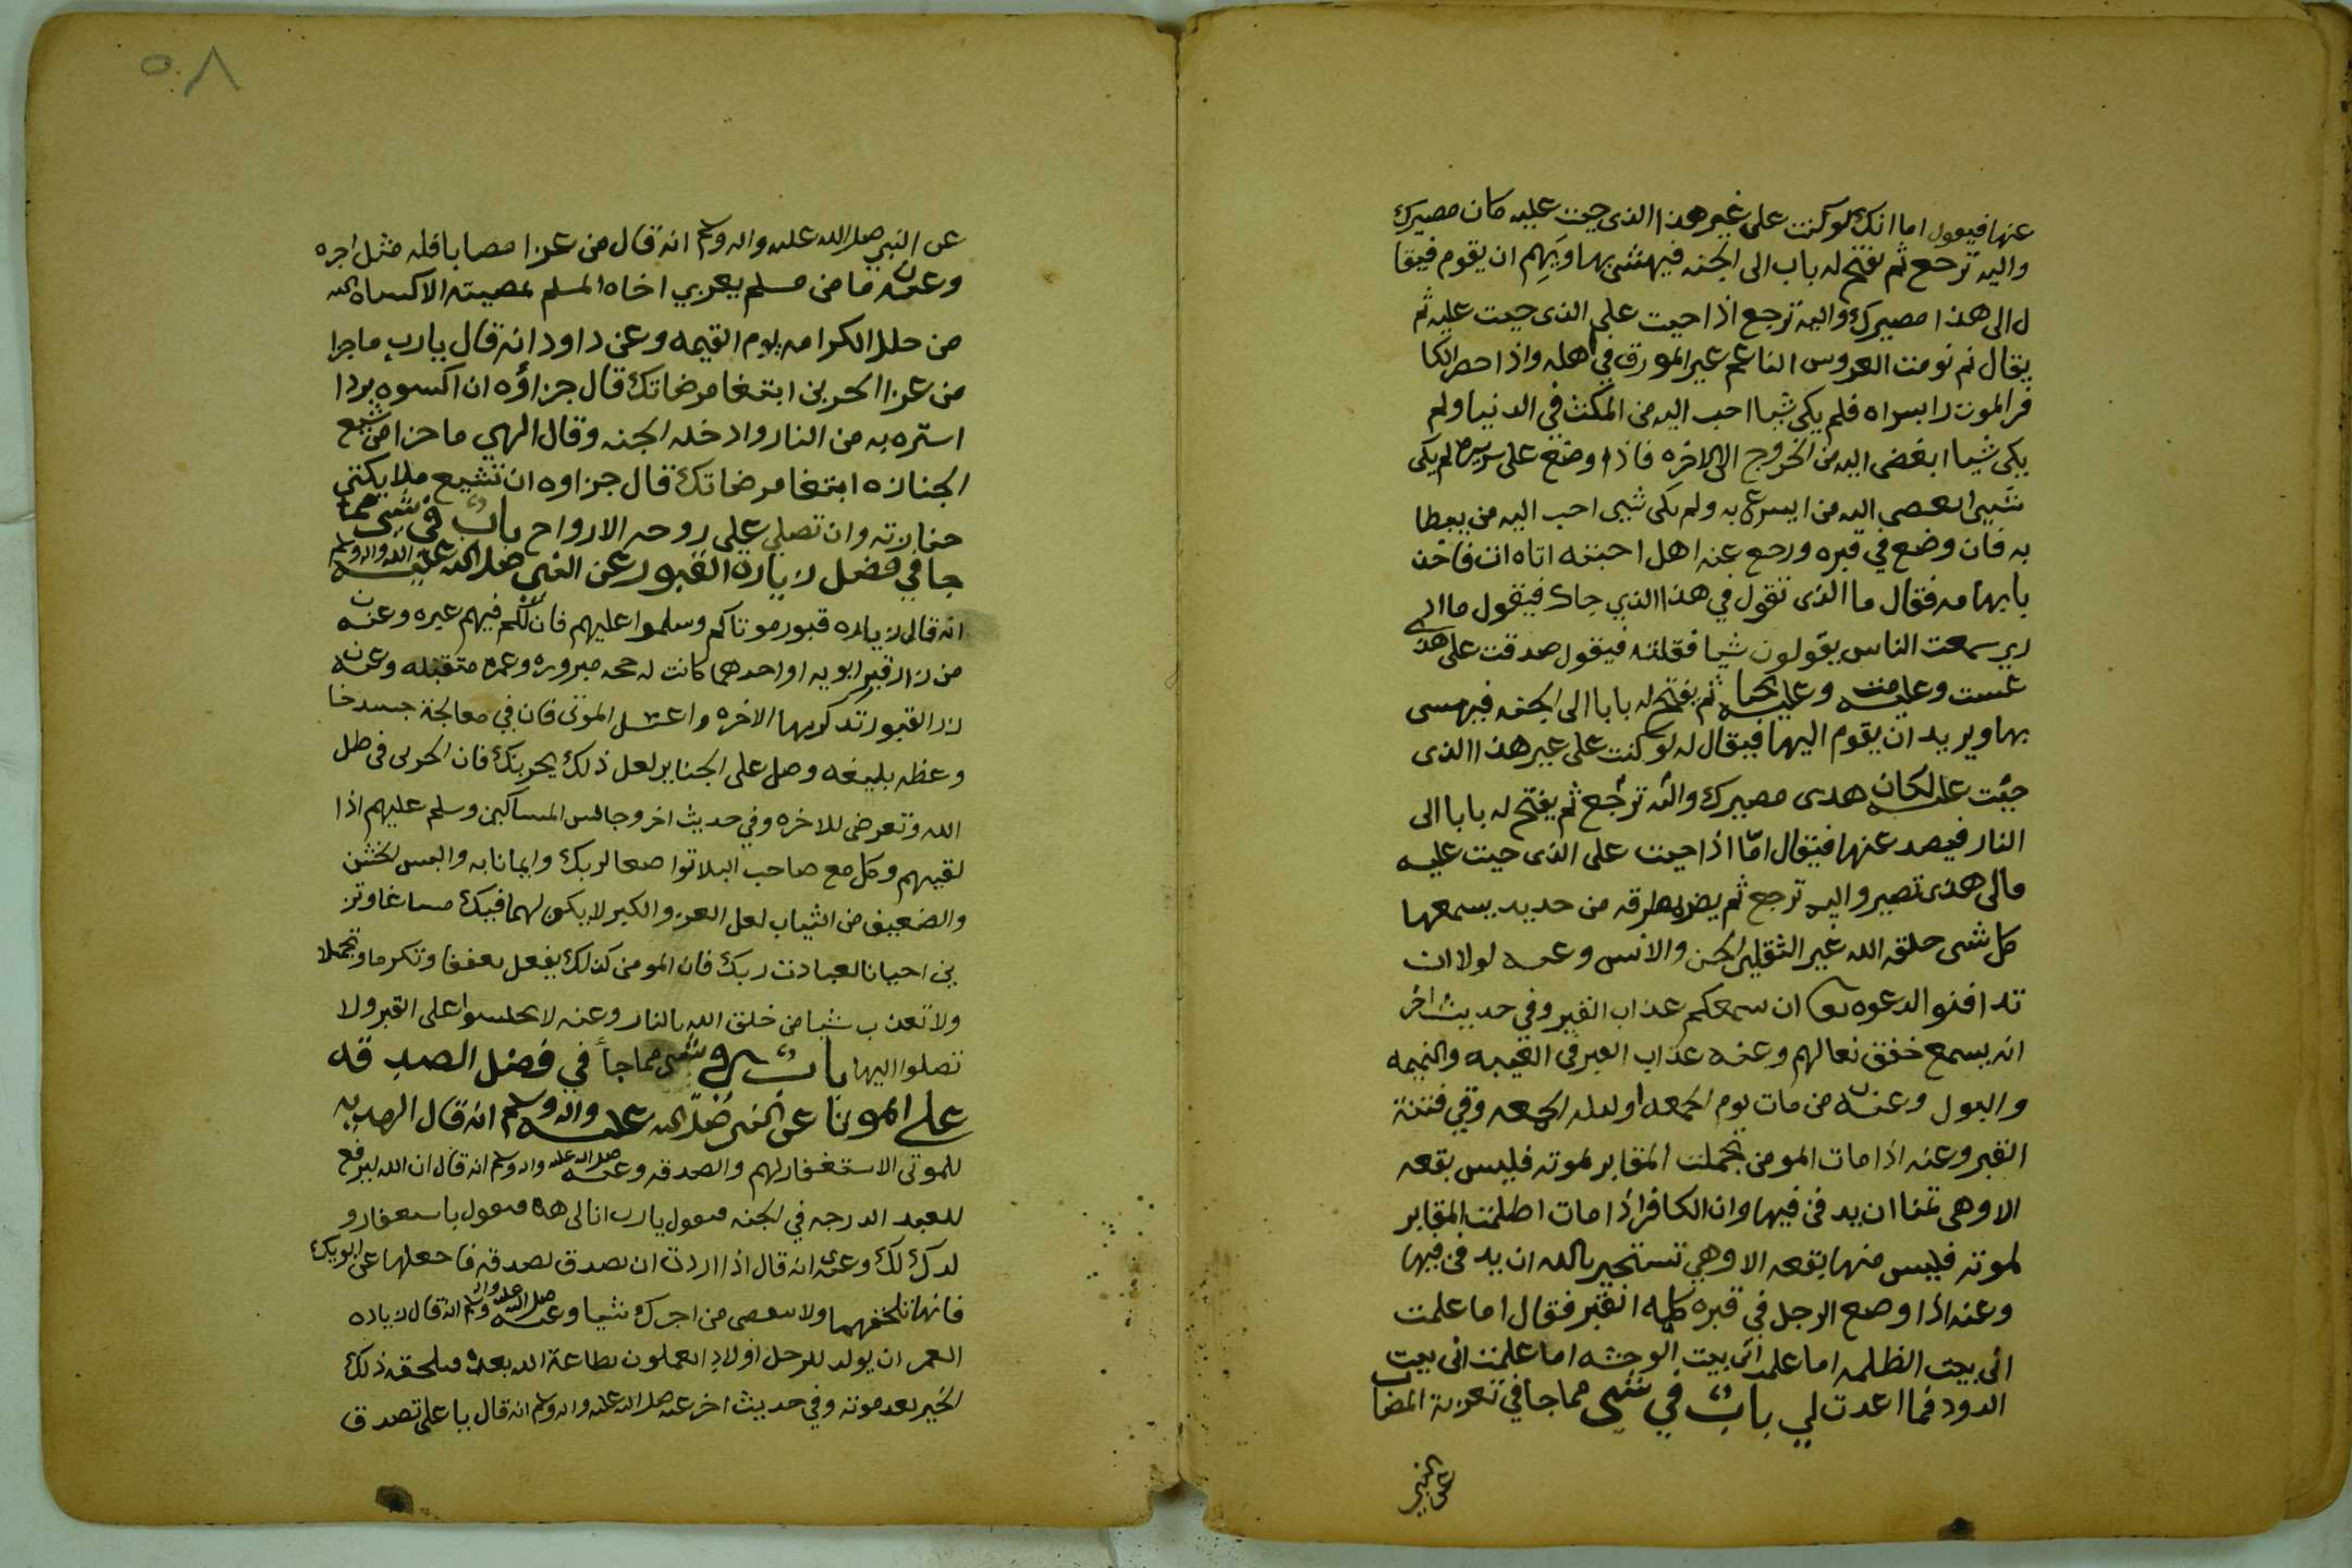 عنها فيقول اما انك لو كنت على غير هذا الذى جيت عليه كان مصيرك
واليه ترجع ثم يفتح له باب الى الجنه فيهشى بها ويهم ان يقوم فيقا
ل الى هذا مصيرك واليه ترجع اذا جيت على الذى جيت عليه ثم
يقال نم نومت العروس الناعم غير المورق في اهله واذا حضر الكا
فر الموت فلم يكن شيا احب اليه من المكث في الدنيا ولم
يكن شيا ابغض اليه من الخروج الى الاخره فاذا وضع على سريره لم يكن
شيى ابغض اليه من ايسرع به ولم يكن شيى احب اليه من يبطا
به فان وضع في قبره ورجع عنه اهل احبته اتاه ات فاخذ
بابهامه فقال ما الذى تقول في هذا الذي جاك فيقول ما اد
رى سمعت الناس يقولون شيا فقلته فيقول صدقت على هذا
عشت وعليه مت وعليه تحيا ثم يفتح له بابا الى الجنه فيهشى
بها ويريد ان يقوم اليها فيقال له لو كنت على غير هذا الذى
جيت عليه لكان هدى مصيرك واليه ترجع ثم يفتح له بابا الى
النار فيصد عنها فيقال امّا اذا جيت على الذى جيت عليه
فالى هذى تصير واليه ترجع ثم يضربه بطرقه من حديد يسمعها
كل شى خلقه الله غير الثقلين الجن والانس وعنه لولا ان
تدافنو الدعوه ان سمعكم عذاب القبر وفي حديث اخر
انه يسمع خفق نعالهم وعنه عذاب القبر في الغيبه والنميمه
والبول وعنه من مات يوم الجمعه او ليله الجمعه وقي فتنة
القبر وعنه اذا مات المومن تجملت المقابر لموته فليس بقعه
الا وهي تمنا ان يدفن فيها وان الكافر اذا مات اظلمت المقابر
لموته فليس منها بقعه الا وهي تستجير بالله ان يدفن فيها
وعنه اذا وضع الرجل في قبره كلمه القبر فقال اما علمت
انى بيت الظلمه اما علمت انى بيت الوحشه اما علمت انى بيت
الدود فما اعدت لي باب في شي مما جا في تعزية المصاب
عن النبي
٥٨
عن النبي صلى الله عليه واله وسلم انه قال من عزا مصابا فله مثل اجره
وعنه ما من مسلم يعزي اخاه المسلم بمصيبته الا كساه الله
من حلل الكرامه يوم القيمه وعن داود انه قال يارب ما جزا
من عزا الحزين ابتغا مرضاتك قال جزاؤه ان اكسوه بردا
استره به من النار وادخله الجنه وقال الهي ما جزا من شيع
الجنازه ابتغا مرضاتك قال جزاوه ان تشيع ملايكتي
جنازته وان تصلي على روحه الارواح باب في شى مما
جا في فضل زيارة القبور عن النبى صلى الله عليه واله وسلم
انه قال زياره قبور موتاكم وسلموا عليهم فان لكم فيهم عبره وعنه
من زار قبر ابويه او احدهما كانت له حجه مبروره وعمره متقبله وعنه
زر القبور تذكر بها الاخره واغسل الموتى فان في معالجة جسد خا
وعظه بليغه وصل على الجنايز لعل ذلك يحزنك فان الحزين في ظل
الله وتعرض للاخره وفي حديث اخر وجالس المساكين وسلم عليهم اذا
لقيهم وكل مع صاحب البلا تواضعا لربك وايمانا به والبس الخشن
والضعيف من الثياب لعل العز والكبر لا يكون لهما فيك مساغا وتز
ين احيانا لعبادت ربك فان المومن كذلك يفعل تعففا وتكرما وتجملا
ولا تعذب شيا من خلق الله بالنار وعنه لا تجلسوا على القبر ولا
تصلوا اليها باب في شى مما جا في فضل الصدقه
على الموتا عن النبى صلى الله عليه واله وسلم انه قال الهديه
للموتى الاستغفار لهم والصدقه وعنه صلى الله عليه واله وسلم انه قال ان الله ليرفع
للعبد الدرجه في الجنه فيقول يارب انا لى هذه فيقول باستغفار و
لدك لك وعنه انه قال اذا اردت ان تصدق بصدقه فاجعلها عن ابويك
فانها تلحقهما ولا ينقص من اجرك شيا وعنه صلى الله عليه واله وسلم انه قال زياده
العمر ان يولد للرجل اولاد يعملون بطاعة الله بعده فيلحقه ذلك
الخير بعد موته وفي حديث اخر عنه صلى الله عليه واله وسلم انه قال يا على تصدق